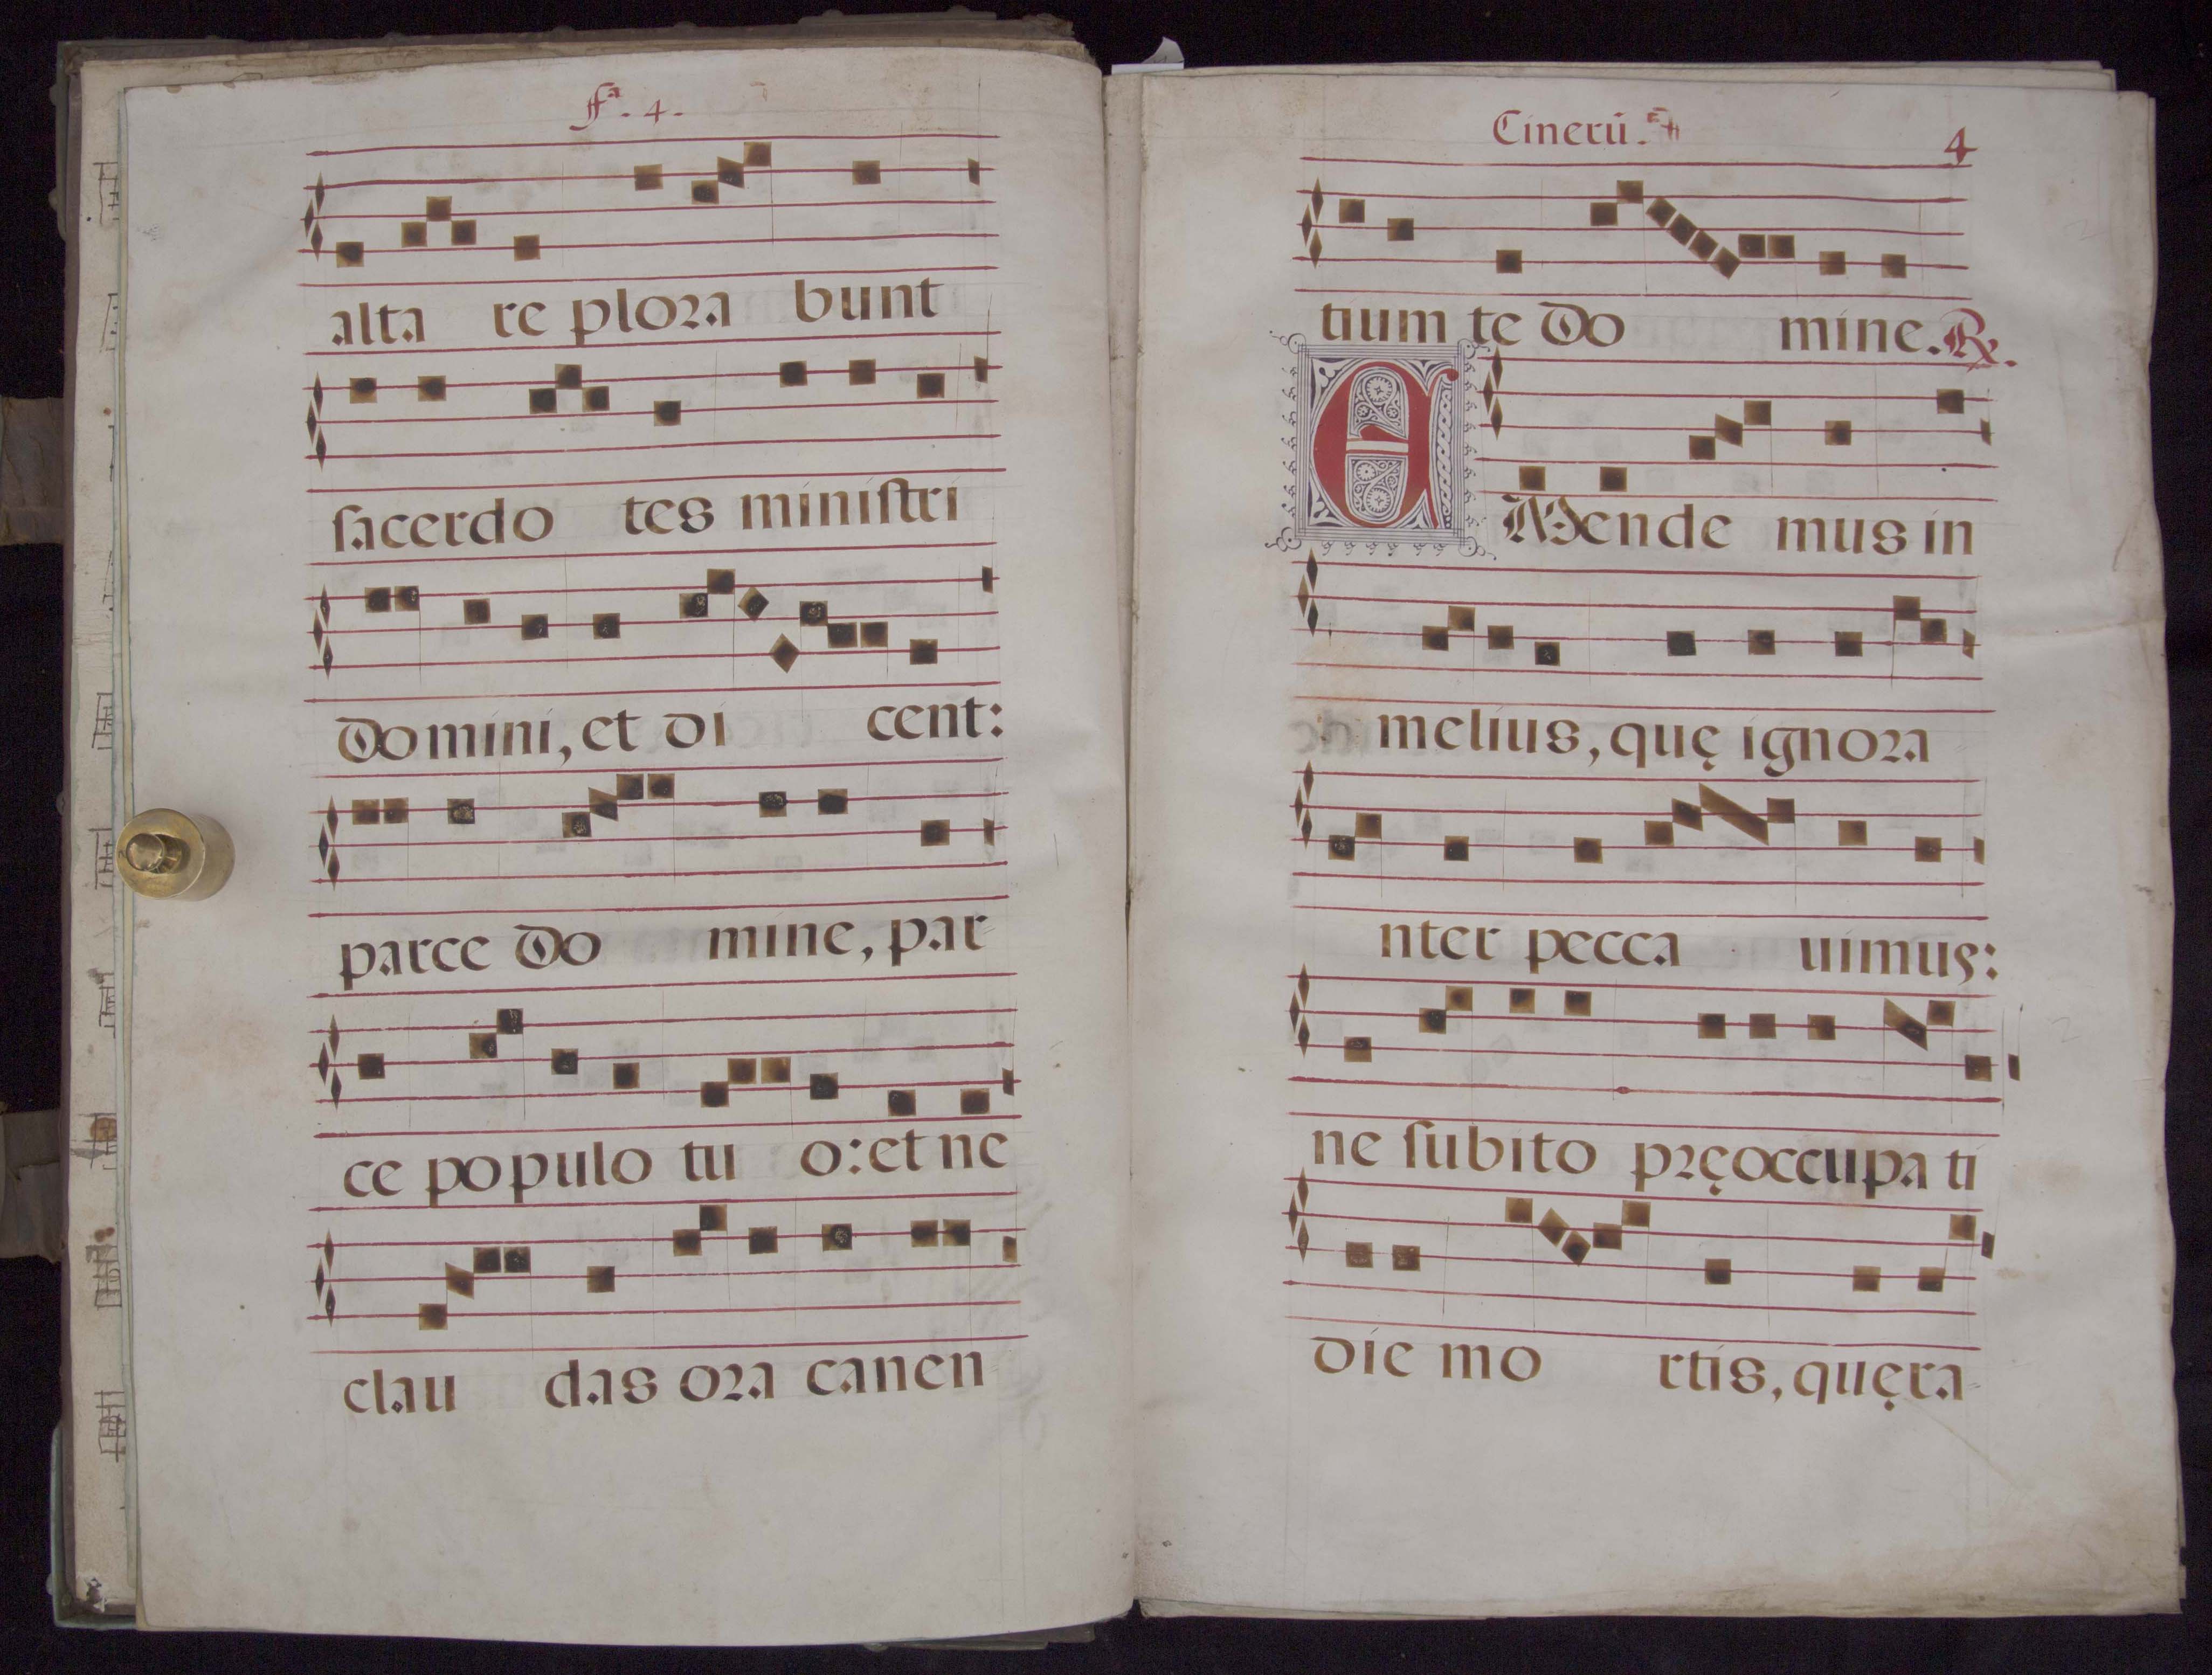 fª. 4.
alta re plora bunt
ſacerdo tes miniſtri
Domini, et di cent:
parce Do mine, par
ce populo tu o: et ne
clau das ora canen
Cinerū.
4
tium te Do mine. ℟.
EMende mus in
melius, quę ignora
nter pecca uimus:
ne ſubito pręoccupa ti
die mo rtis, quęra